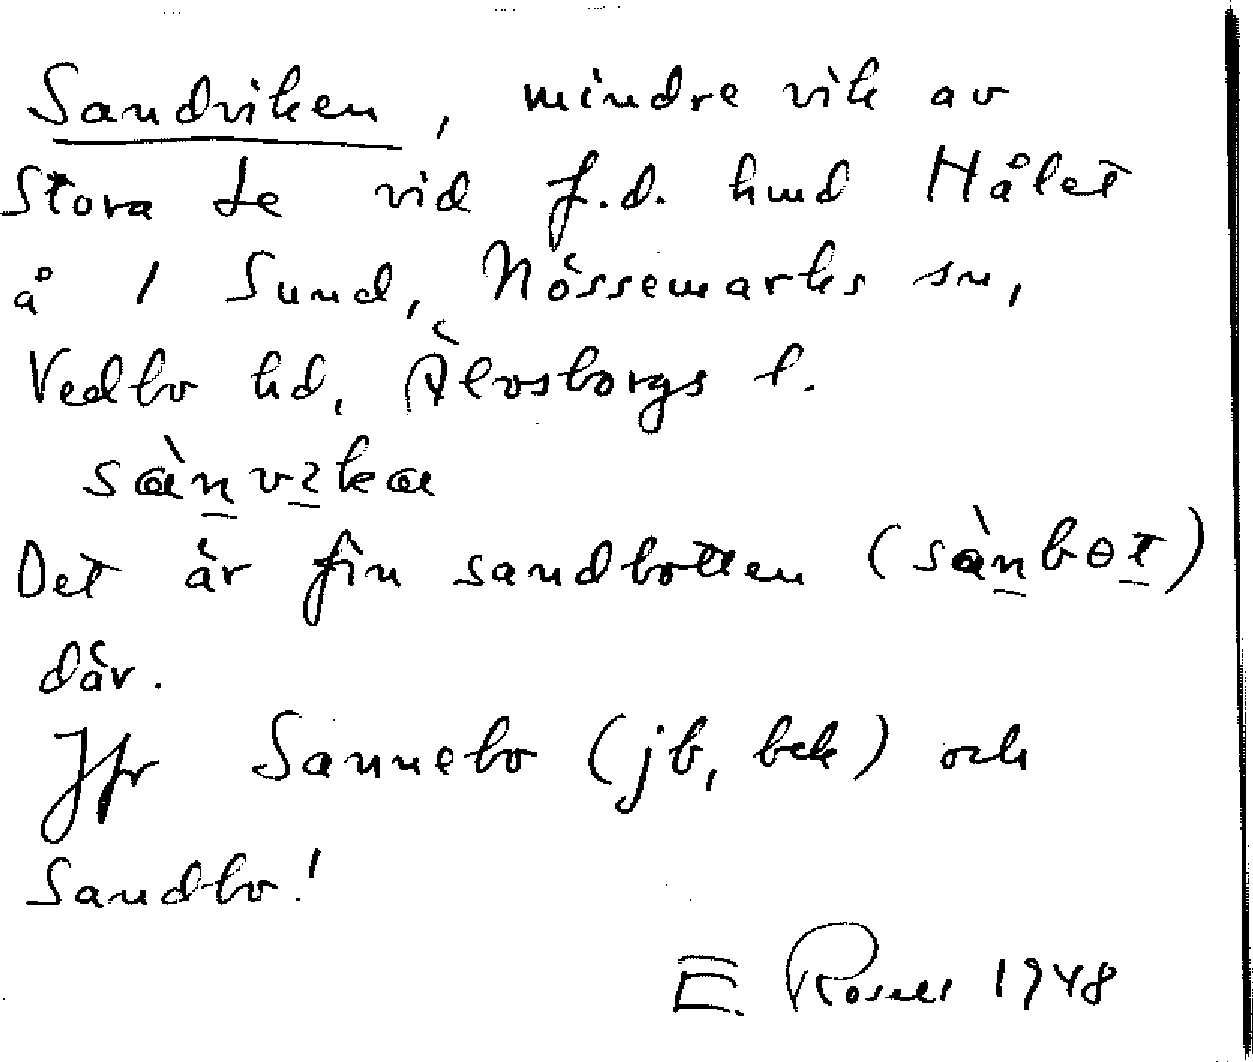 Sandviken, mindre vik av
Stora Le vid f.d. hmd Hålet
å 1 Sund, Nössemarks sn,
Vedbo hd, Älvsborgs l.
sànvika
Det är fin sandbotten (sànbɵt)
där.
Jfr Sannebo (jb, bek) och
Sandbo!
E. Rosell 1948